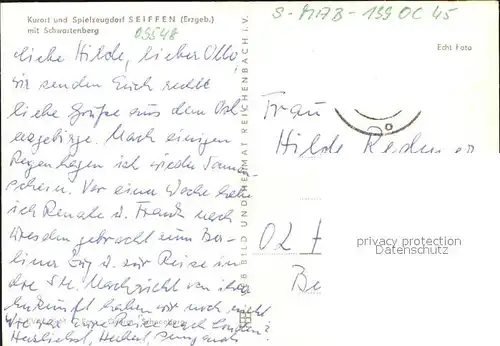 Kurort und Spielzeugdorf SEIFFEN (Erzgeb.)
mit Schwartenberg
09548
S-M17B-199 OC 45
Echt Foto
Liebe Hilde, lieber Otto,
wir senden Euch recht
liebe Grüße aus dem Ost-
erzgebirge. Nach einigen
Regentagen ist wieder Sonnen-
schein. Vor einer Woche habe
ich Renate u. Frank nach
Dresden gebracht zum Ber-
liner Zug u. zur Reise in
die SU. Nachricht von ihrer
Ankunft haben wir noch nicht
Wie war eure Reise nach
Herzlichst, Herbert,
VEB BILD UND HEIMAT REICHENBACH I. V.
Frau
Hilde
privacy protection
Datenschutz